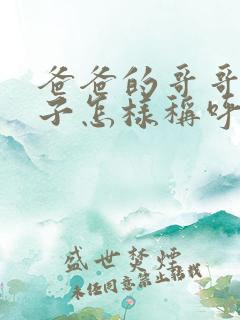 爸爸的哥哥
子怎样称呼
盛世焚烟
未经同意禁止转载